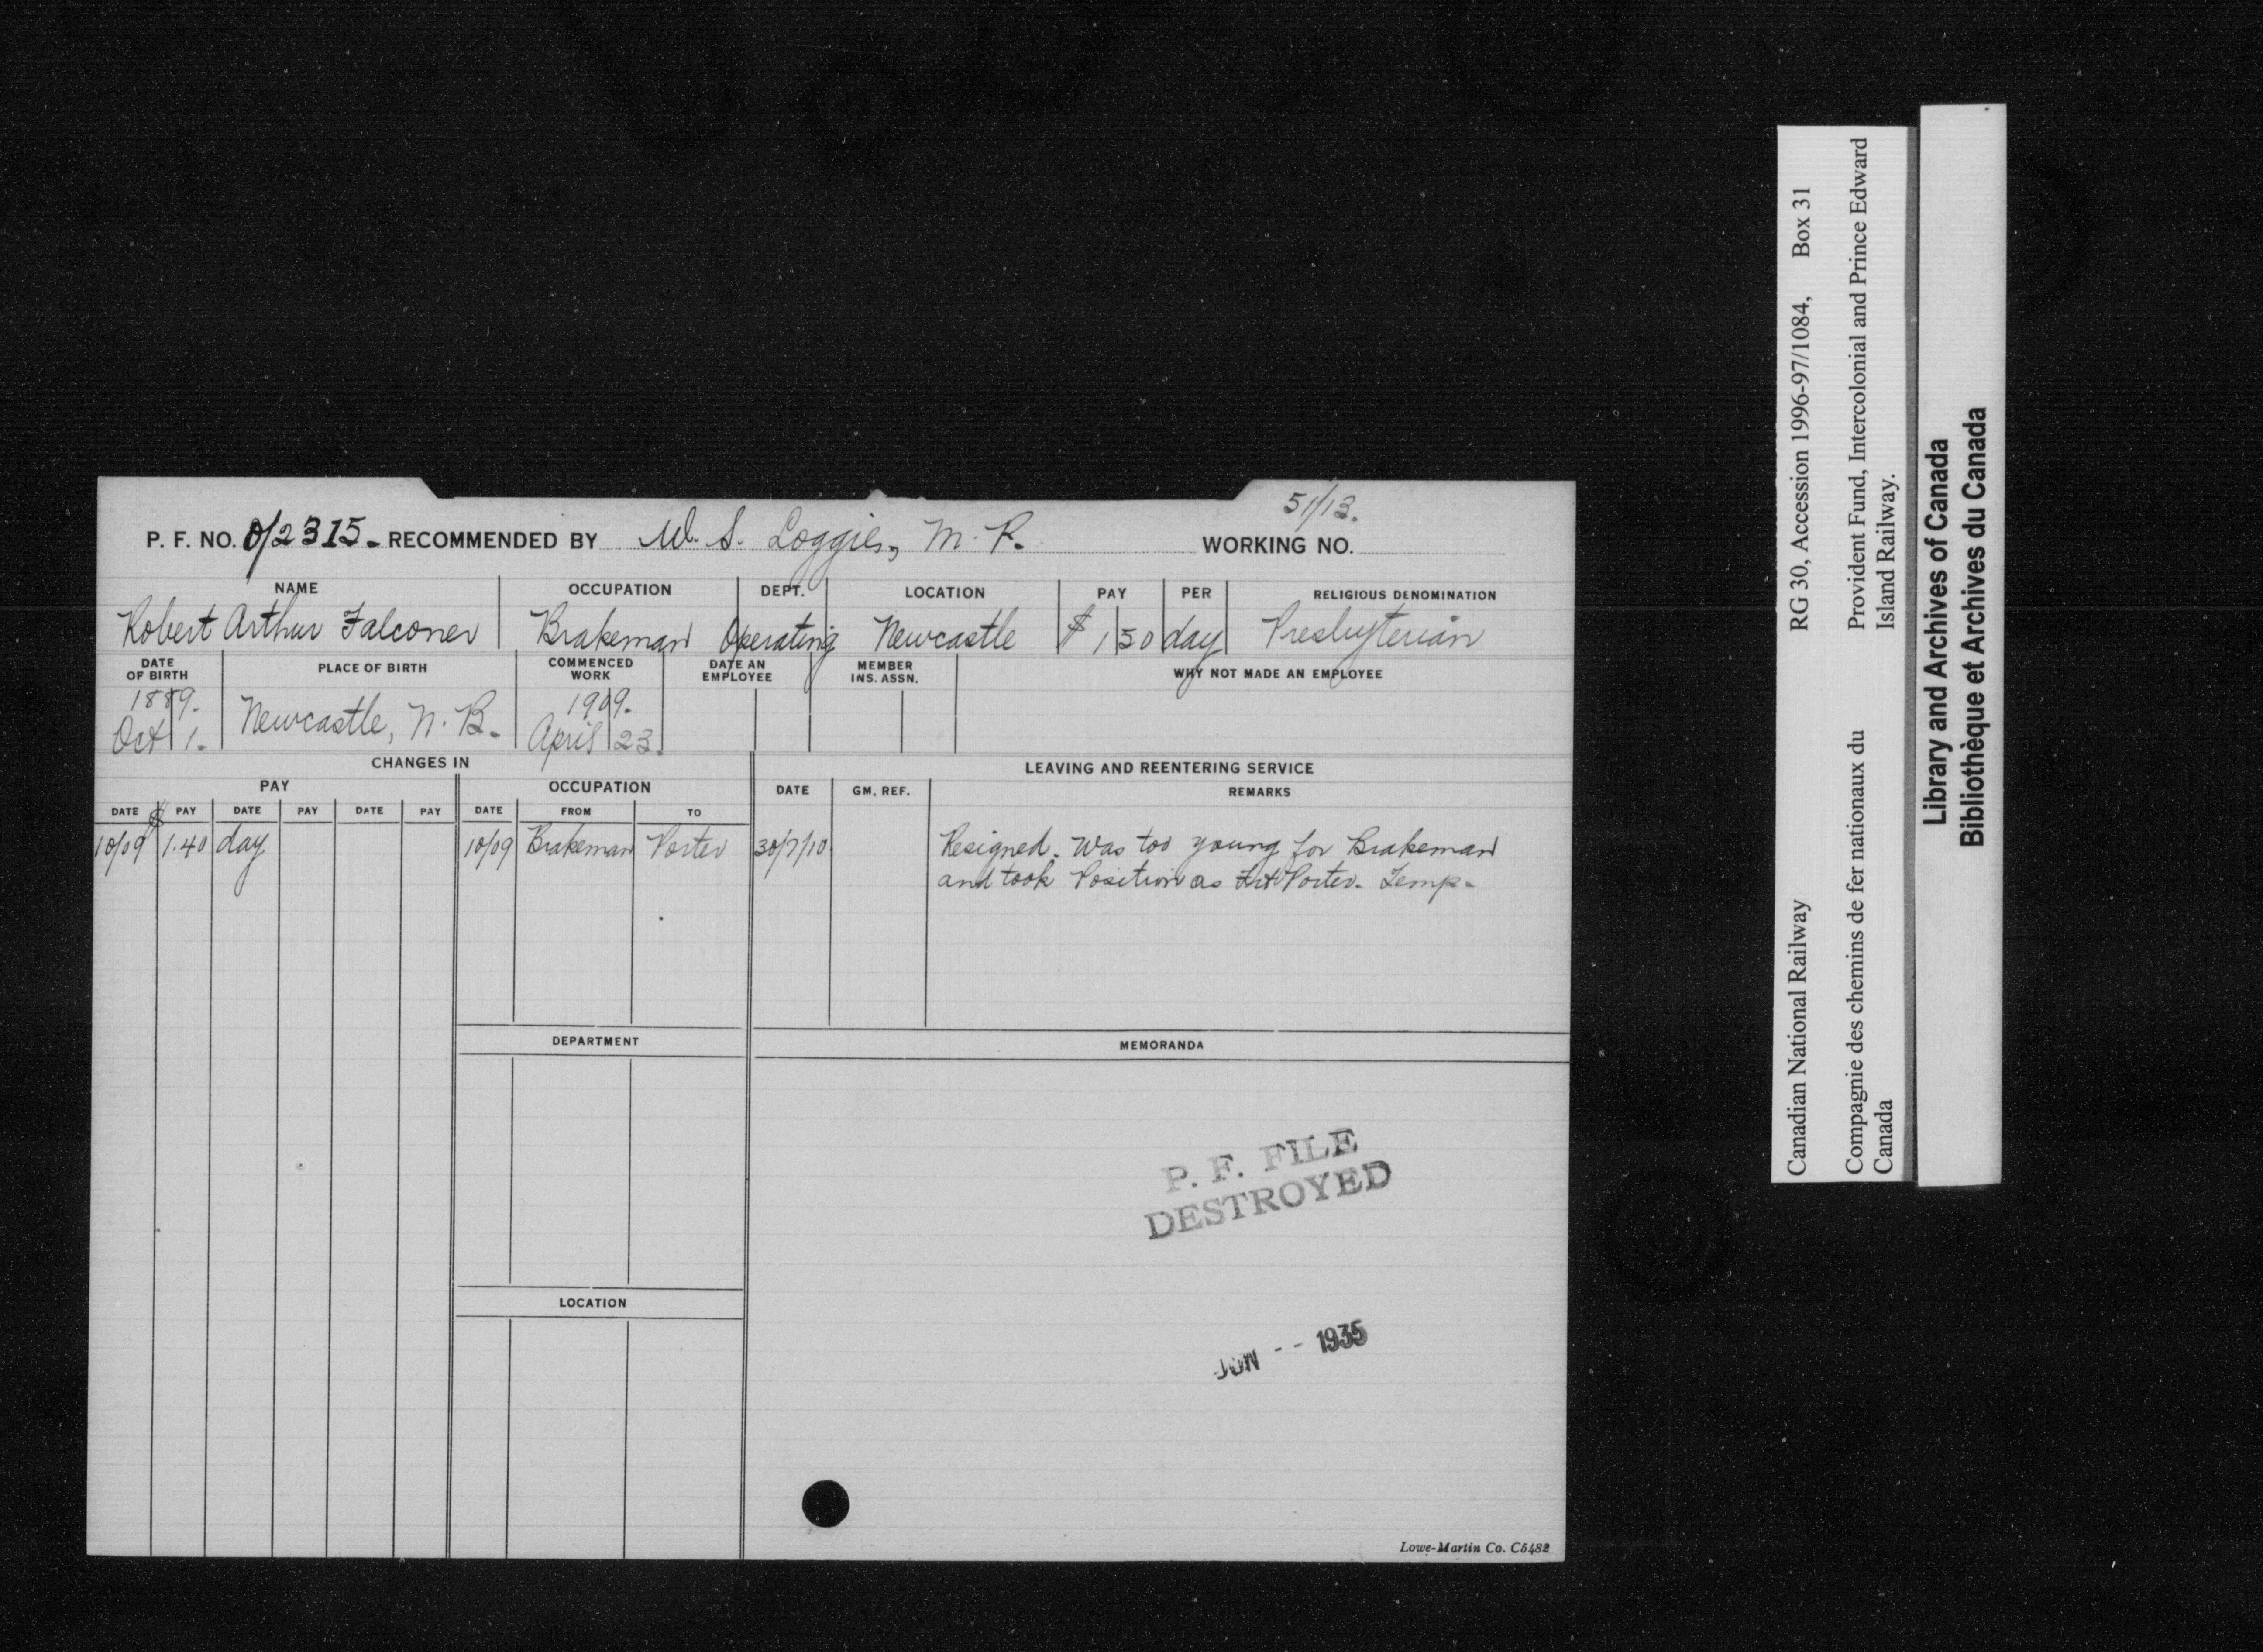 51/13.
P. F. NO. 0/2315. RECOMMENDED BY W. S. Loggie, M. P. WORKING NO.
NAME OCCUPATION DEPT. LOCATION PAY PER RELIGIOUS DENOMINATION
Robert Arthur Falconer Brakeman Operating Newcastle $ 1 50 day Presbyterian
DATE OF BIRTH PLACE OF BIRTH COMMENCED WORK DATE AN EMPLOYEE MEMBER INS. ASSN. WHY NOT MADE AN EMPLOYEE
1889. 1909.
Oct 1. Newcastle, N. B. April 23.
CHANGES IN LEAVING AND REENTERING SERVICE
PAY OCCUPATION DATE GM. REF. REMARKS
DATE $ PAY DATE PAY DATE PAY DATE FROM TO
10/09 1.40 day 10/09 Brakeman Porter 30/7/10 Resigned. Was too young for Brakeman
and took Position as Frt Porter. Temp.
DEPARTMENT MEMORANDA
P. F. FILE
DESTROYED
LOCATION
JUN -- 1935
Lowe-Martin Co. C5482
Canadian National Railway RG 30, Accession 1996-97/1084, Box 31
Compagnie des chemins de fer nationaux du Provident Fund, Intercolonial and Prince Edward
Canada Island Railway.
Library and Archives of Canada
Bibliothèque et Archives du Canada